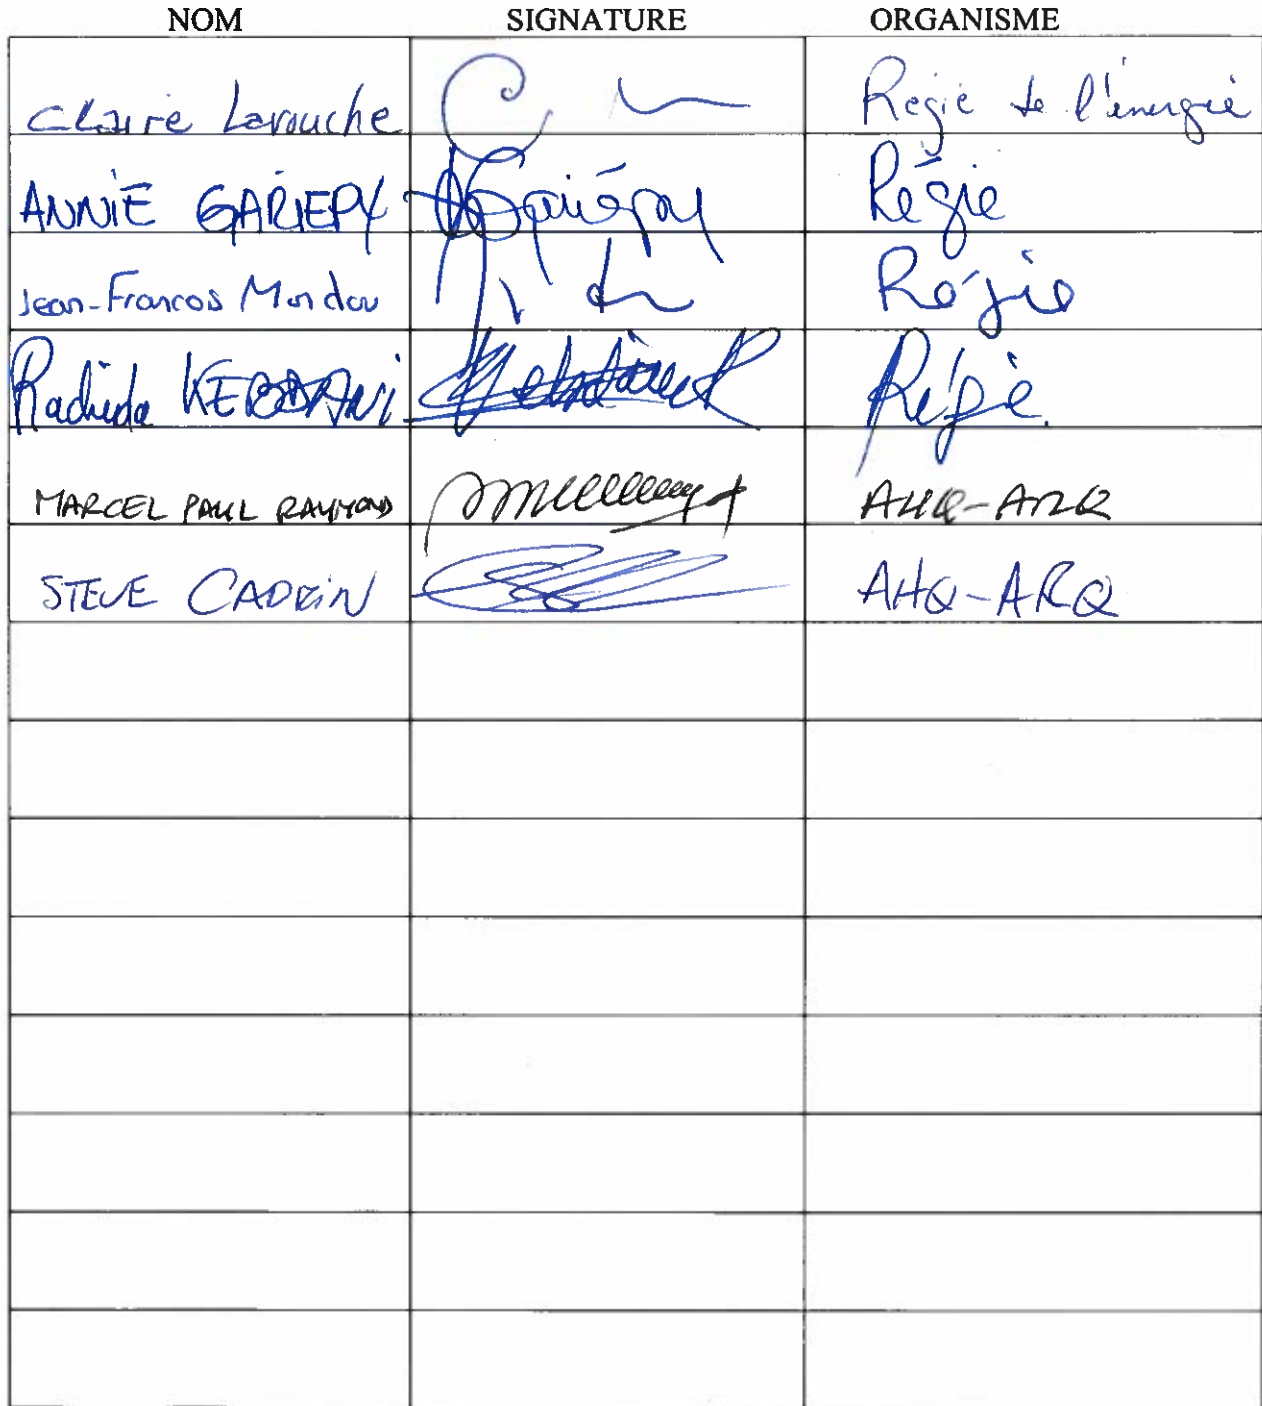 NOM SIGNATURE ORGANISME
Claire Larouche Régie de l'énergie
ANNIE GARIEPY AGariépy Régie
Jean-Francos Mondou Régie
Rachida Régie.
MARCEL PAUL RAYMOND AHQ-ARQ
STEVE CADRIN AHQ-ARQ